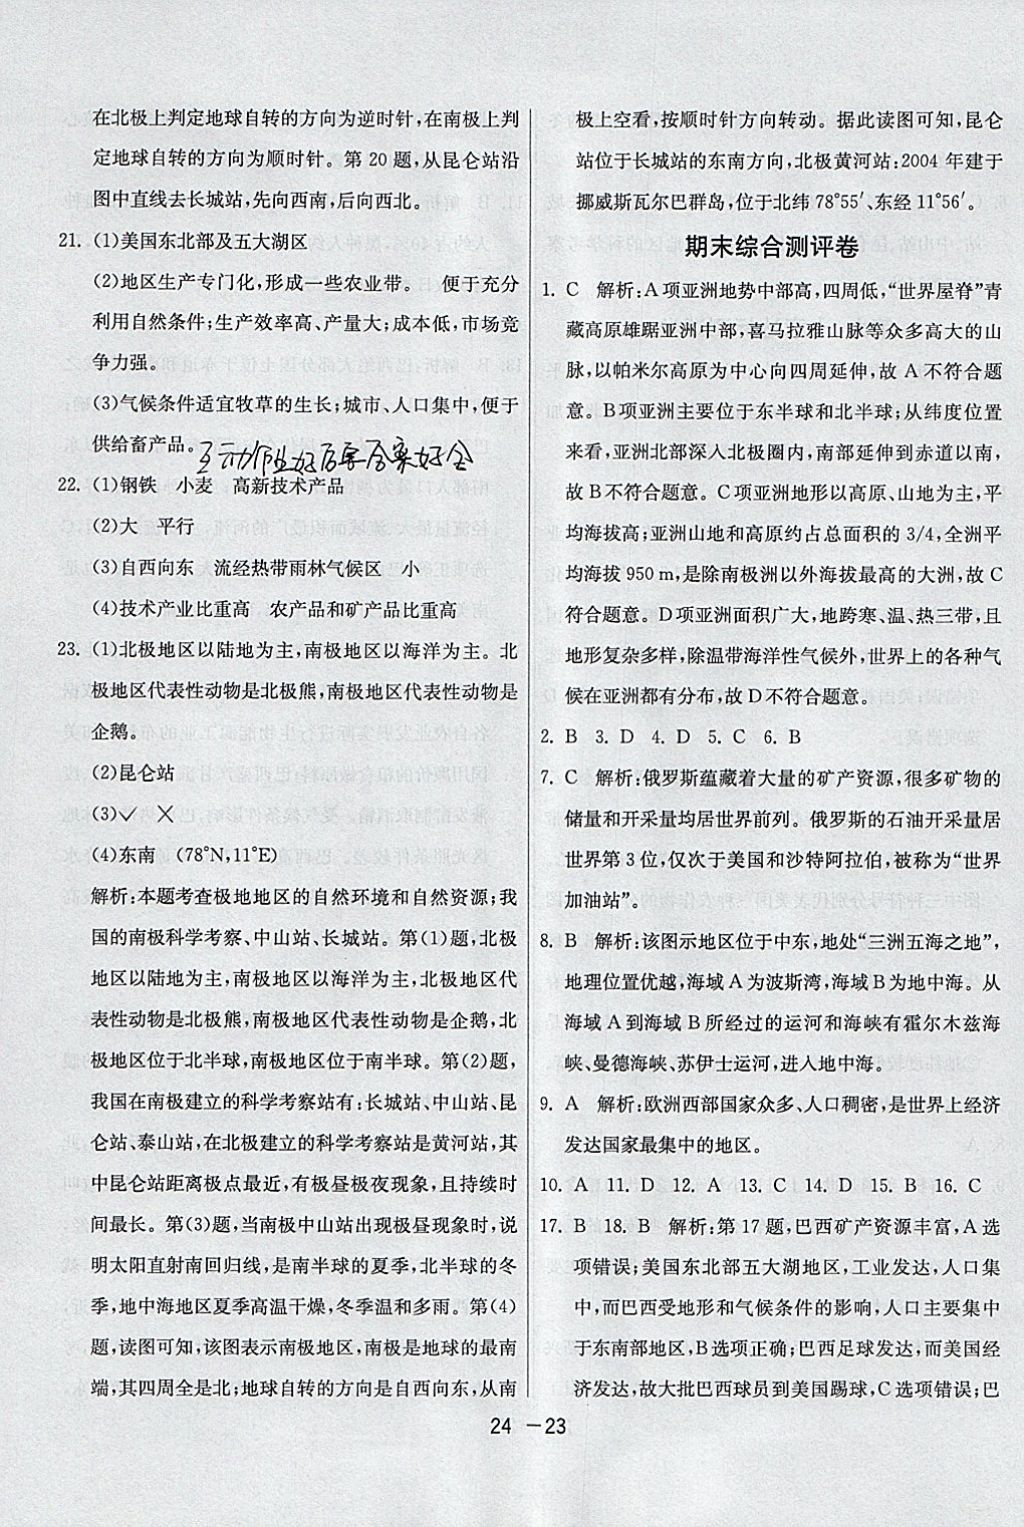 在北极上判定地球自转的方向为逆时针,在南极上判
定地球自转的方向为顺时针。第20题,从昆仑站沿
图中直线去长城站,先向西南,后向西北。
21. (1)美国东北部及五大湖区
(2)地区生产专门化,形成一些农业带。 便于充分
利用自然条件;生产效率高、产量大;成本低,市场竞
争力强。
(3)气候条件适宜牧草的生长;城市、人口集中,便于
供给畜产品。
22. (1)钢铁 小麦 高新技术产品
(2)大 平行
(3)自西向东 流经热带雨林气候区 小
(4)技术产业比重高 农产品和矿产品比重高
23. (1)北极地区以陆地为主,南极地区以海洋为主。北
极地区代表性动物是北极熊,南极地区代表性动物是
企鹅。
(2)昆仑站
(3)✓ ×
(4)东南 (78°N,11°E)
解析:本题考查极地地区的自然环境和自然资源;我
国的南极科学考察、中山站、长城站。第(1)题,北极
地区以陆地为主,南极地区以海洋为主,北极地区代
表性动物是北极熊,南极地区代表性动物是企鹅,北
极地区位于北半球,南极地区位于南半球。第(2)题,
我国在南极建立的科学考察站有:长城站、中山站、昆
仑站、泰山站,在北极建立的科学考察站是黄河站,其
中昆仑站距离极点最近,有极昼极夜现象,且持续时
间最长。第(3)题,当南极中山站出现极昼现象时,说
明太阳直射南回归线,是南半球的夏季,北半球的冬
季,地中海地区夏季高温干燥,冬季温和多雨。第(4)
题,读图可知,该图表示南极地区,南极是地球的最南
端,其四周全是北;地球自转的方向是自西向东,从南
极上空看,按顺时针方向转动。据此读图可知,昆仑
站位于长城站的东南方向,北极黄河站:2004年建于
挪威斯瓦尔巴群岛,位于北纬78°55′、东经11°56′。
期末综合测评卷
1. C 解析:A项亚洲地势中部高,四周低,“世界屋脊”青
藏高原雄踞亚洲中部,喜马拉雅山脉等众多高大的山
脉,以帕米尔高原为中心向四周延伸,故A不符合题
意。B项亚洲主要位于东半球和北半球;从纬度位置
来看,亚洲北部深入北极圈内,南部延伸到赤道以南,
故B不符合题意。C项亚洲地形以高原、山地为主,平
均海拔高;亚洲山地和高原约占总面积的3/4,全洲平
均海拔950 m,是除南极洲以外海拔最高的大洲,故C
符合题意。D项亚洲面积广大,地跨寒、温、热三带,且
地形复杂多样,除温带海洋性气候外,世界上的各种气
候在亚洲都有分布,故D不符合题意。
2. B 3. D 4. D 5. C 6. B
7. C 解析:俄罗斯蕴藏着大量的矿产资源,很多矿物的
储量和开采量均居世界前列。俄罗斯的石油开采量居
世界第3位,仅次于美国和沙特阿拉伯,被称为“世界
加油站”。
8. B 解析:该图示地区位于中东,地处“三洲五海之地”,
地理位置优越,海域A为波斯湾,海域B为地中海。从
海域A到海域B所经过的运河和海峡有霍尔木兹海
峡、曼德海峡、苏伊士运河,进入地中海。
9. A 解析:欧洲西部国家众多、人口稠密,是世界上经济
发达国家最集中的地区。
10. A 11. D 12. A 13. C 14. D 15. B 16. C
17. B 18. B 解析:第17题,巴西矿产资源丰富,A选
项错误;美国东北部五大湖地区,工业发达,人口集
中,而巴西受地形和气候条件的影响,人口主要集中
于东南部地区,B选项正确;巴西足球发达,而美国经
济发达,故大批巴西球员到美国踢球,C选项错误;巴
24 -23